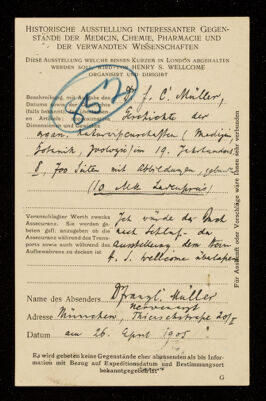 HISTORISCHE AUSSTELLUNG INTERESSANTER GEGEN-
STÄNDE DER MEDICIN, CHEMIE, PHARMACIE UND
DER VERWANDTEN WISSENSCHAFTEN
DIESE AUSSTELLUNG WELCHE BINNEN KURZEM IN LONDON ABGEHALTEN
WERDEN SOLL, WIRD VON HENRY S. WELLCOME
ORGANISIRT UND DIRIGIRT
552
Beschreibung, mit Angabe des
Datums sowie der Geschichte
(falls bekannt)
en Artikels;
Dimensionen und Gewicht
Dr. F. C. Müller,
Geschichte der
organ. Naturwissenschaften (Medizin,
Botanik, Zoologie) im 19. Jahrhundert
8°, 700 Seiten mit Abbildungen, gebun
(10 Mk Ladenpreis)
Voranschlagter Werth zwecks
Assecuranz. Sie werden ge-
beten gefl. anzugeben ob die
Assecuranz während des Trans-
ports sowie auch während des
Aufbewahrens zu decken ist
Ich würde das Buch
nach Schluss der
Ausstellung dem Herrn
H. S. Wellcome überlassen
Für Auskunft oder Vorschläge wäre Ihnen sehr verbunden
Name des Absenders Dr Franz C. Müller
Nervenarzt
Adresse München, Thierschstrasse 20/I
Datum am 26. April 1905
Es wird gebeten keine Gegenstände eher abzusenden als bis Infor-
mation mit Bezug auf Expeditionsdatum und Bestimmungsort
bekanntgegeben ist
G